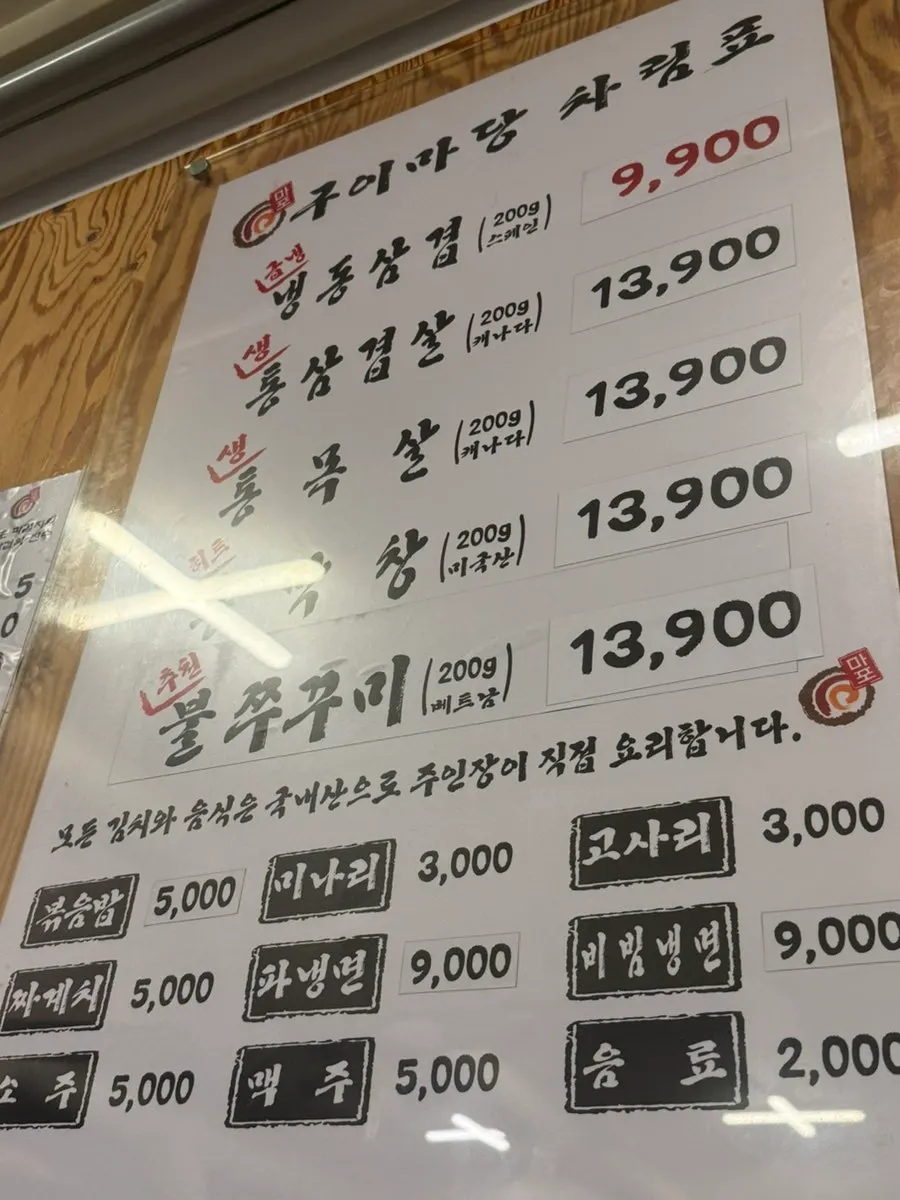 마포 구이마당 차림표
급냉 냉동삼겹 (200g 스페인) 9,900
생 통삼겹살 (200g 캐나다) 13,900
생 통목살 (200g 캐나다) 13,900
창 (200g 미국산) 13,900
추천 불쭈꾸미 (200g 베트남) 13,900
마포
모든 김치와 음식은 국내산으로 주인장이 직접 요리합니다.
볶음밥 5,000 미나리 3,000 고사리 3,000
짜계치 5,000 파냉면 9,000 비빔냉면 9,000
소주 5,000 맥주 5,000 음료 2,000
5
0